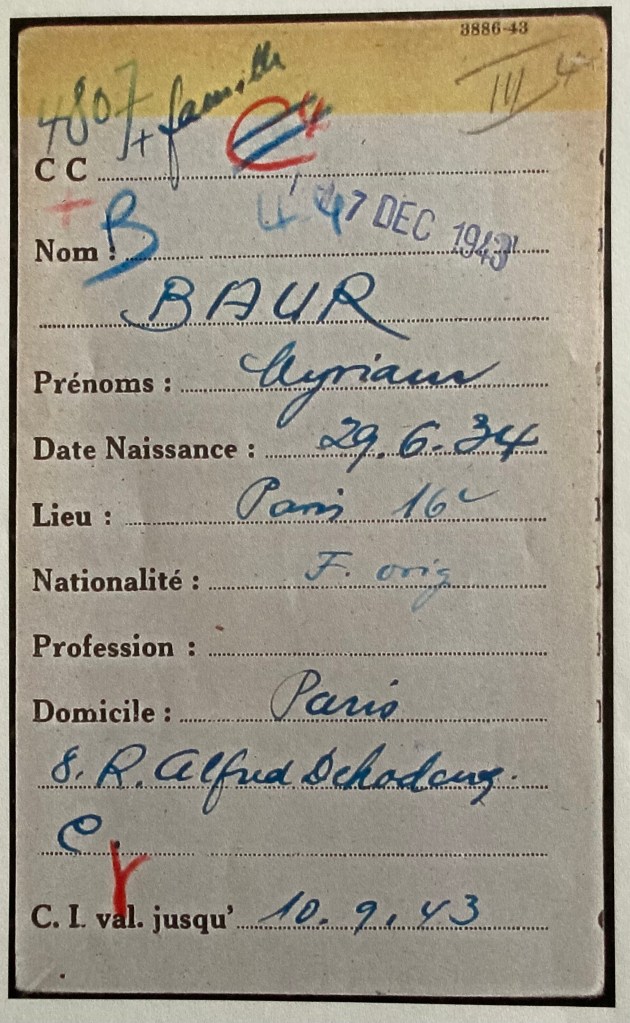 3886-43
4807 + famille
III 4
C C
B 17 DEC 1943
Nom :
BAUR
Prénoms : Myriam
Date Naissance : 29.6.34
Lieu : Paris 16e
Nationalité : F. orig
Profession :
Domicile : Paris
8. R. Alfred Dehodencq.
C.
C. I. val. jusqu' 10.9.43